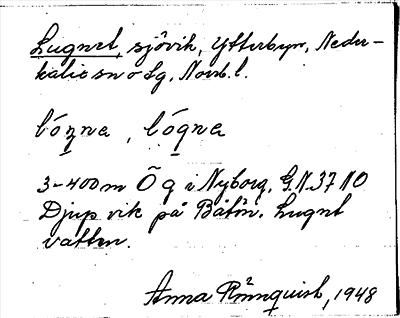 Lugnet, sjövik, Ytterbyn, Neder-
kalix sn o Lg, Norrb. l.
lóŋna, lóŋna
3-400 m Ö g i Nyborg, G.N.37 NO
Djup vik på Båtön. Lugnt
vatten.
Anna Rönnquist, 1948